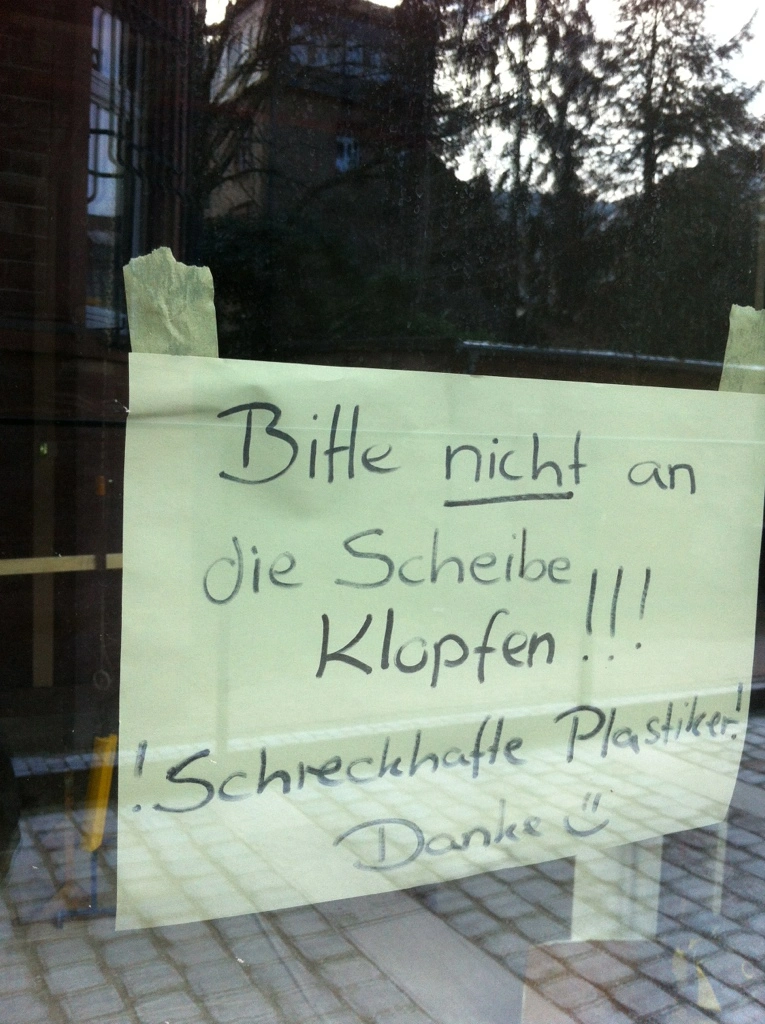 Bitte nicht an
die Scheibe
Klopfen!!!
! Schreckhafte Plastiker!
Danke ü